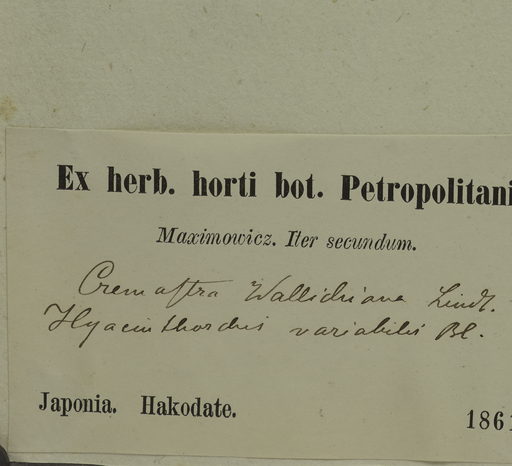 Ex herb. horti bot. Petropolitani
Maximowicz. Iter secundum.
Cremastra Wallichiana Lindl.
Hyacinthorchis variabilis Bl.
Japonia. Hakodate.
1861